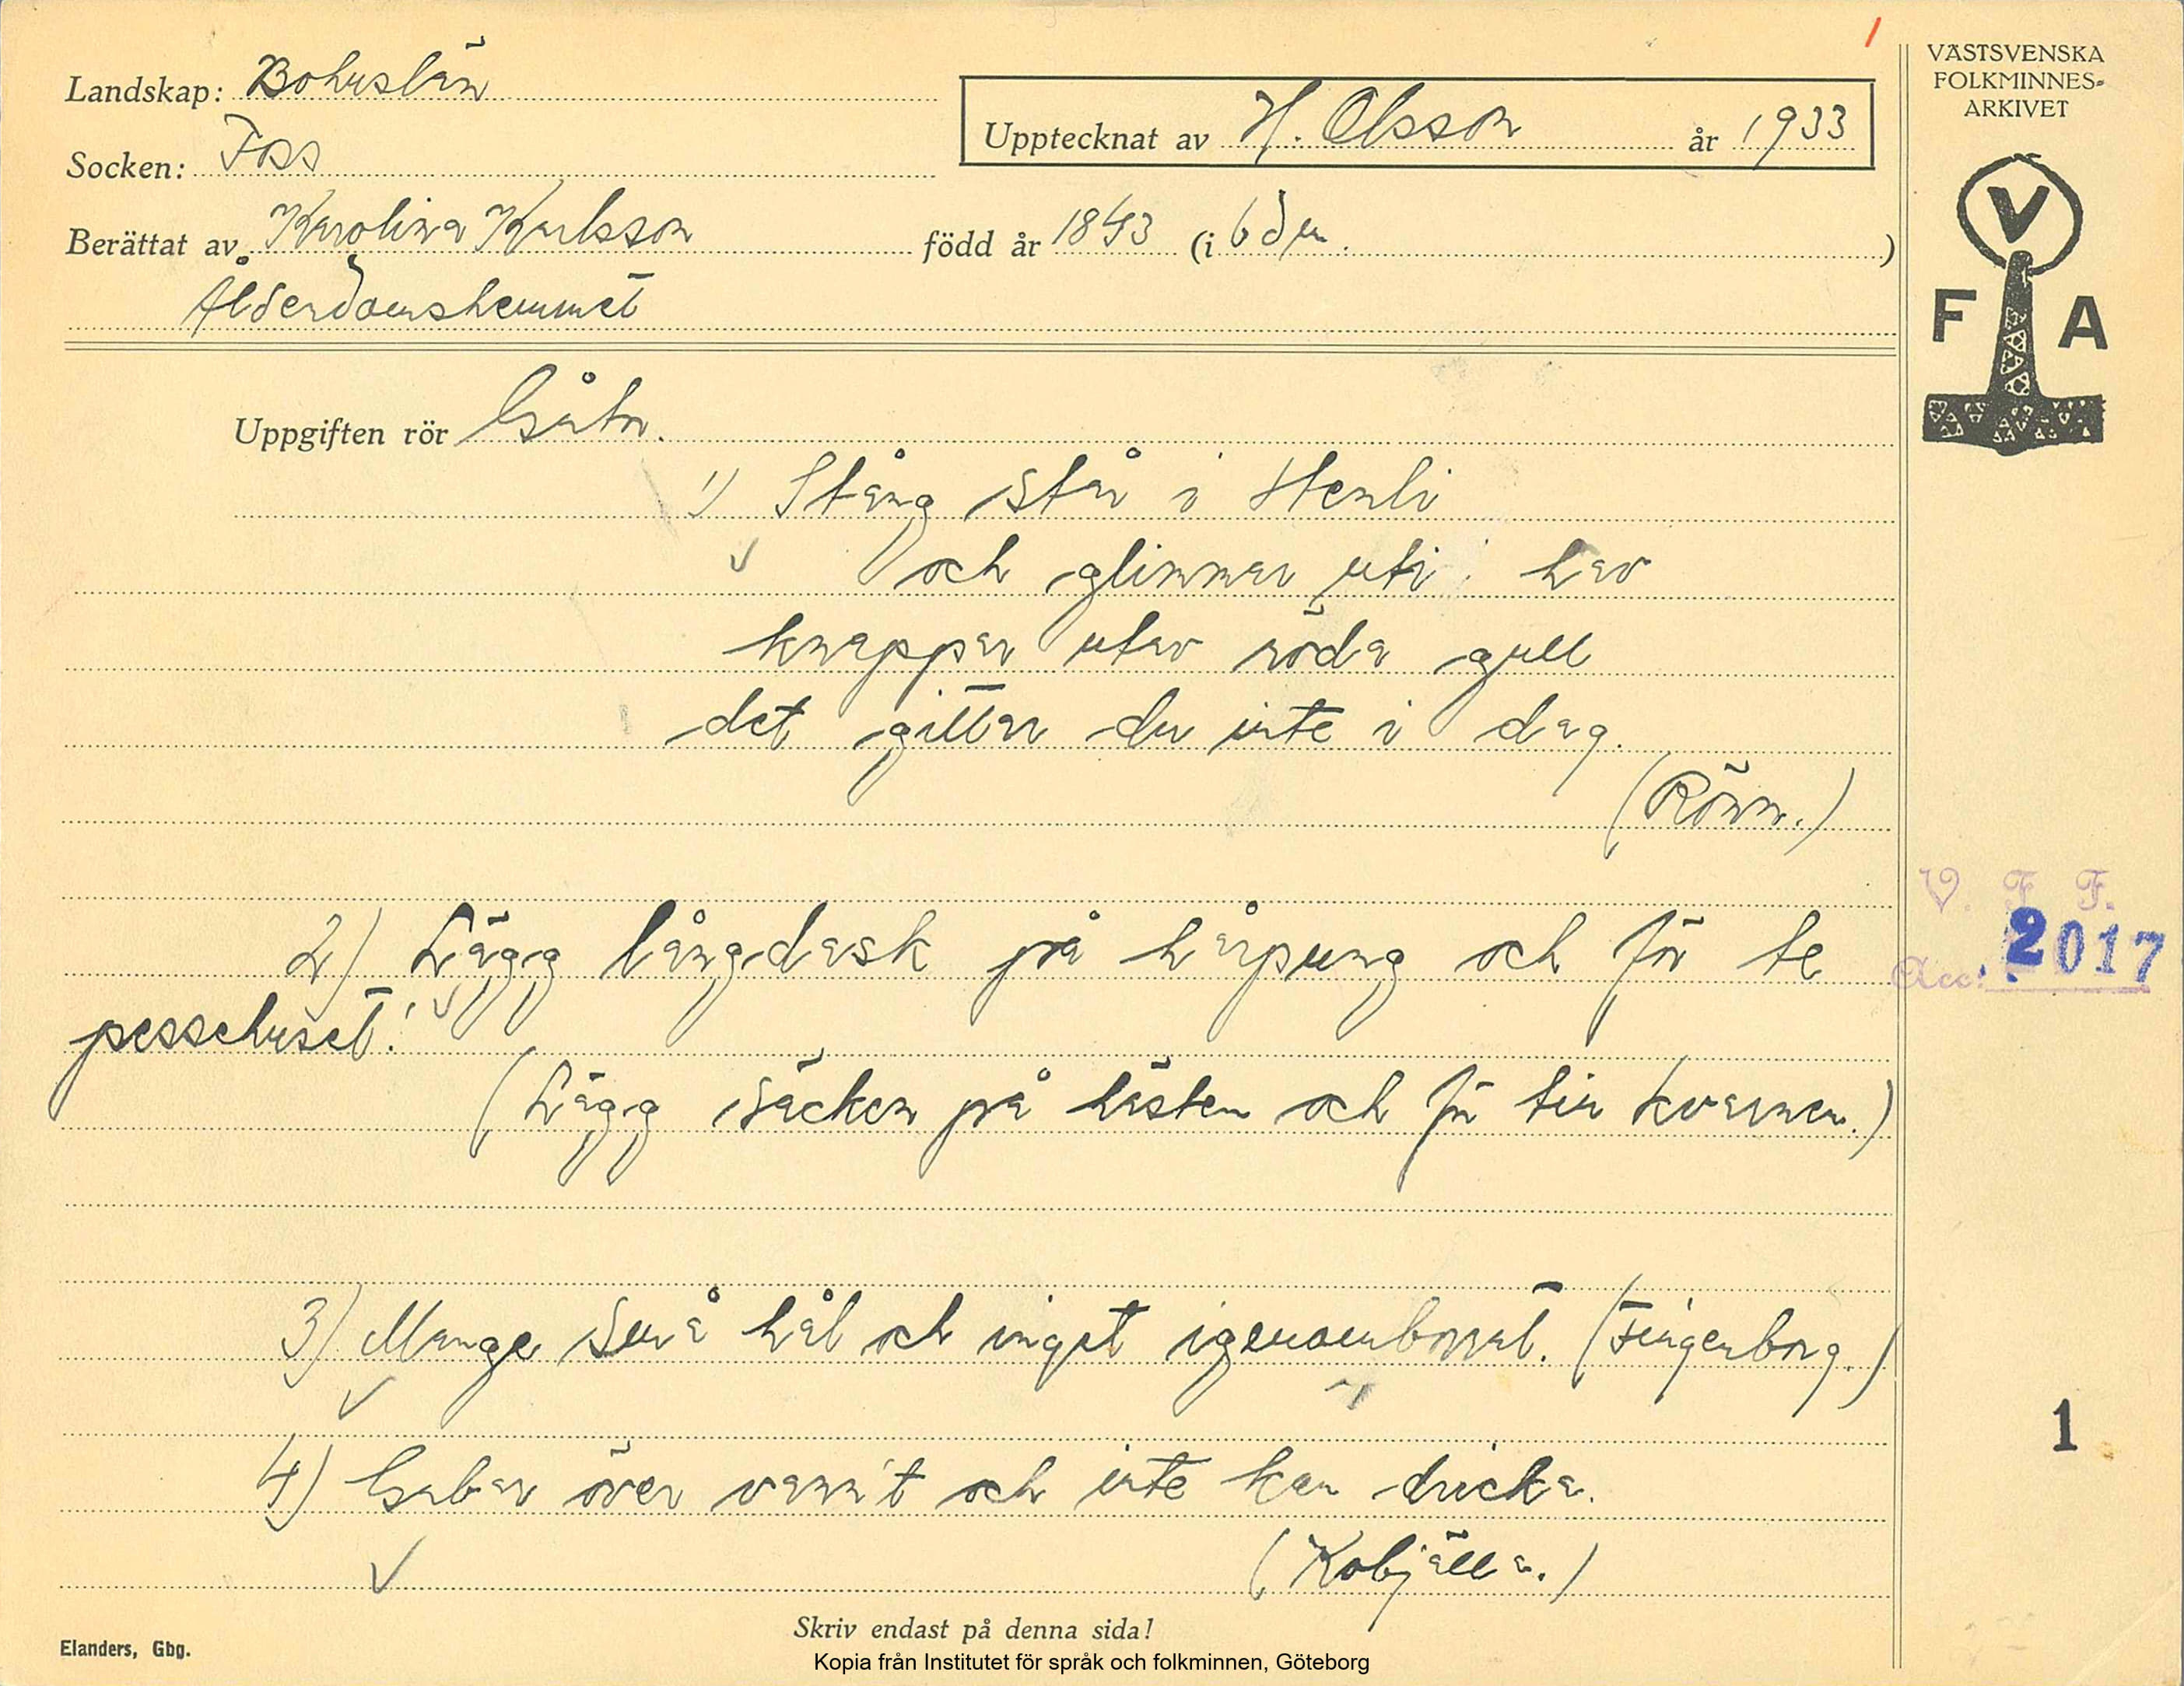 Landskap: Bohuslän
Socken: Foss
Berättat av Karolina Karlsson
Ålderdomshemmet
Upptecknat av H. Olsson år 1933
född år 1843 (i )
VÄSTSVENSKA
FOLKMINNES-
ARKIVET
V
F A
Uppgiften rör Gåtor.
1) Stång står i Henli
och glimmar uti hav
knappar utav röda gull
det gittar du inte i dag.
(Rönn.)
2) Lägg långdask på hårpung och för te
pessehuset!
(Lägg säcken på hästen och för till kvarnen.)
3) Mange små hål och inget igenomborrat. (Fingerborg.)
4) Gabar över vann't och inte kan dricka.
(Kobjälla.)
V. F. F.
Acc: 2017
1
Skriv endast på denna sida!
Elanders, Gbg.
Kopia från Institutet för språk och folkminnen, Göteborg